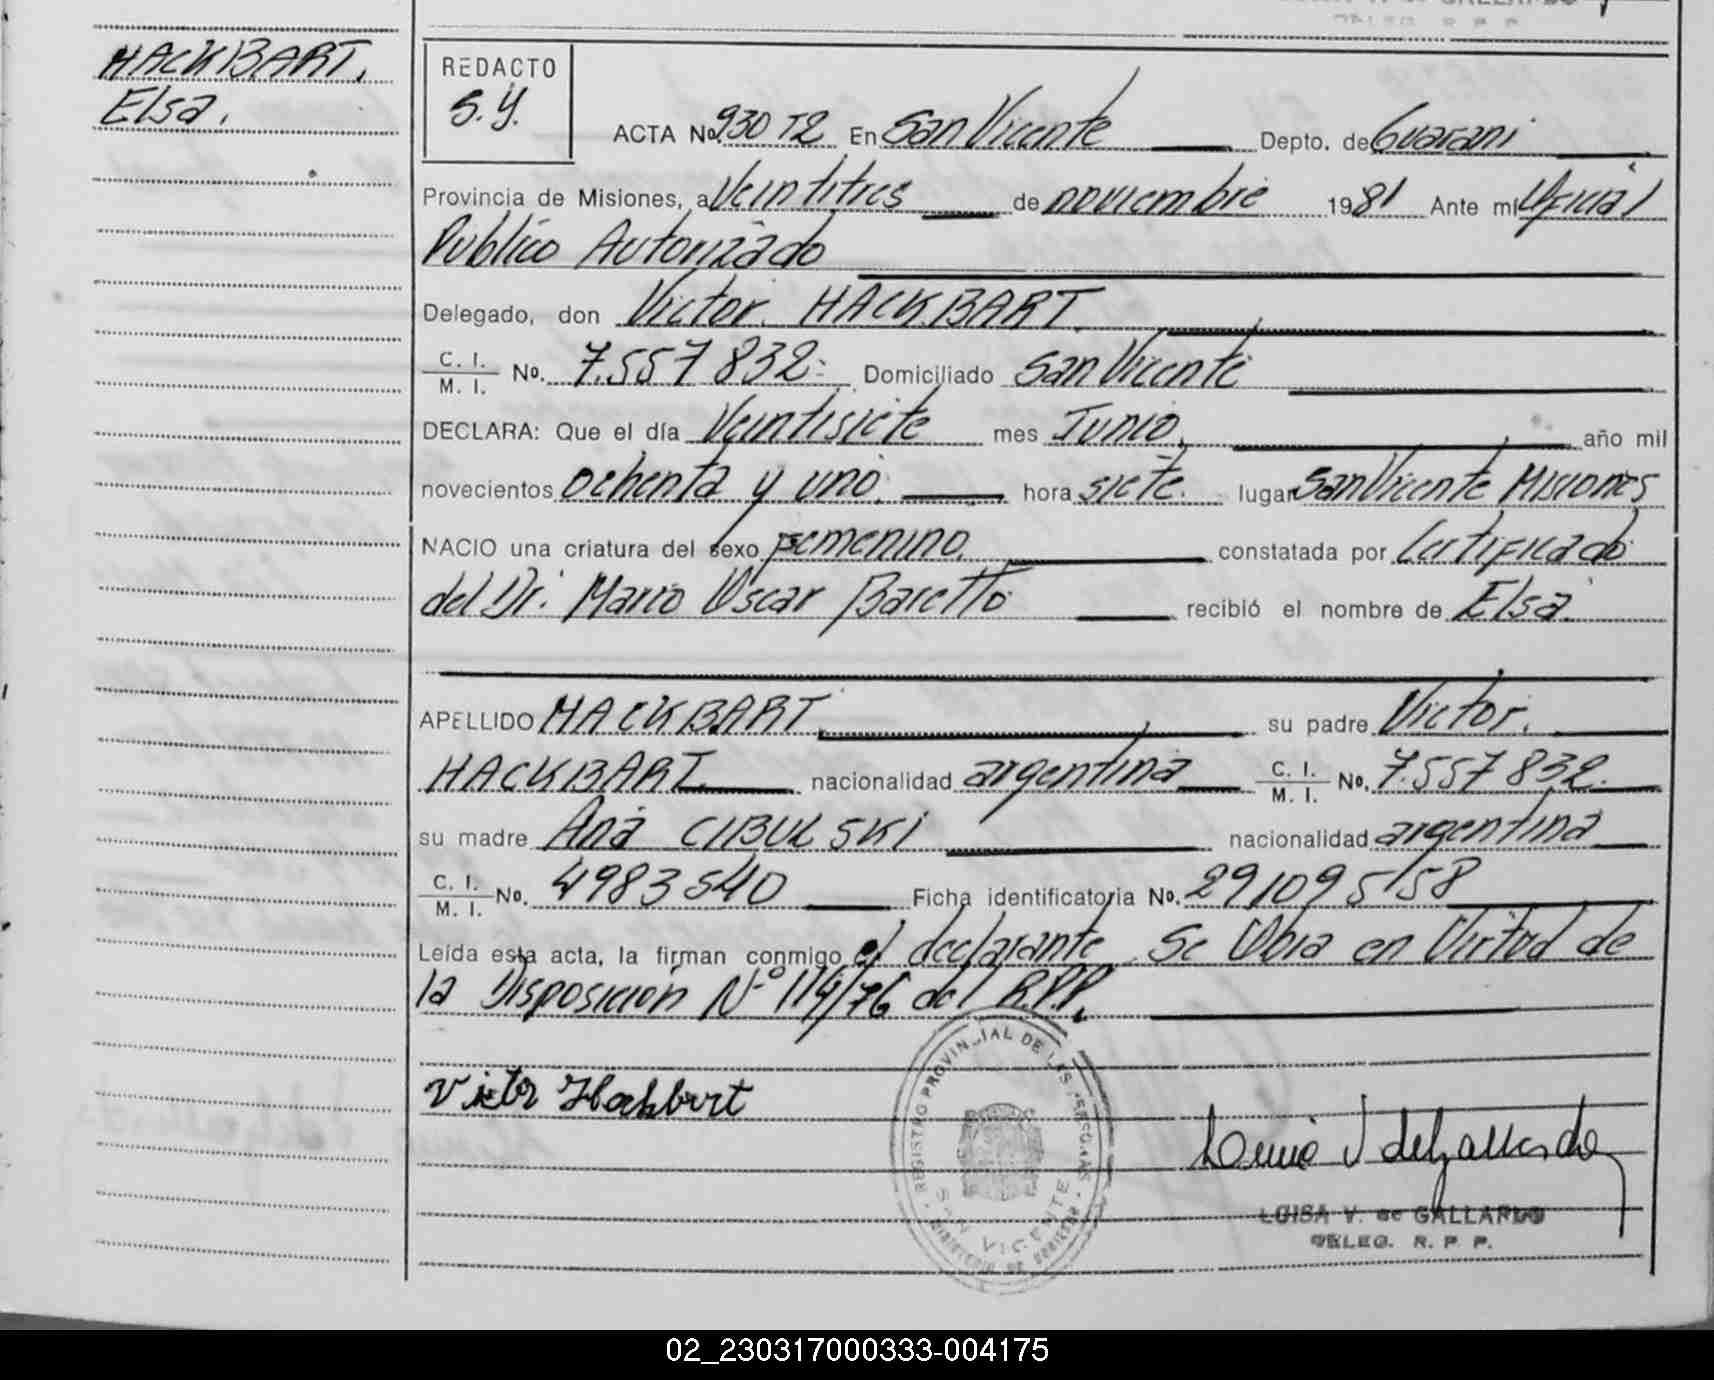 HACKBART,
Elsa.
REDACTO
S.Y.
ACTA No. 930 T2 En San Vicente Depto. de Guarani
Provincia de Misiones, a Veintitres de noviembre 1981 Ante mi Oficial
Publico Autorizado
Delegado, don Victor. HACKBART.
C. I. / M. I. No. 7.557 832 Domiciliado San Vicente
DECLARA: Que el día Veintisiete mes Junio, año mil
novecientos ochenta y uno. hora siete. lugar San Vicente Misiones
NACIO una criatura del sexo femenino. constatada por Certificado
del Dr. Mario Oscar Baretto recibió el nombre de Elsa.
APELLIDO HACKBART, su padre Victor.
HACKBART. nacionalidad argentina C. I. / M. I. No. 7.557 832.
su madre Ana CIBULSKI nacionalidad argentina
C. I. / M. I. No. 4983540 Ficha identificatoria No. 291095/58
Leída esta acta, la firman conmigo el declarante. Se Obra en Virtud de
la Disposición Nº 114/76 del R.P.P.
Victor Hackbart
REGISTRO PROVINCIAL DE LAS PERSONAS
SAN VICENTE
MINISTERIO DE GOBIERNO
LUISA V. de GALLARDO
DELEG. R. P. P.
02_230317000333-004175